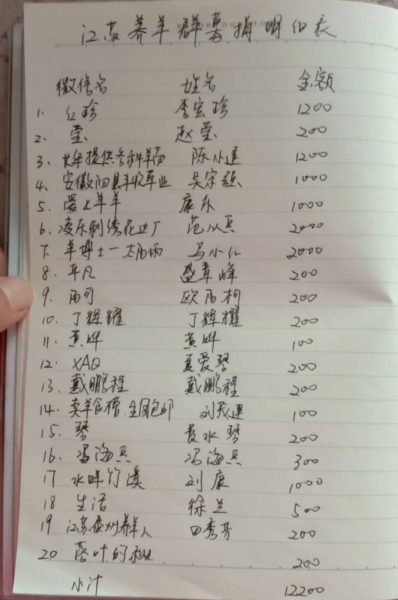 江苏养羊群募捐明细表
微信名 姓名 金额
1. 红珍 李宏珍 1200
2. 莹 赵莹 200
3. 常年提供各种羊苗 陈小进 1200
4. 安徽 草业 吴宗 1000
5. 羊 康乐 1000
6. 凌乐刺绣花边厂 范 2000
7. 羊博士一 马小仁 2000
8. 平凡 盛章峰 200
9. 雨可 欧雨桐 200
10. 丁辉耀 丁辉耀 200
11. 黄晔 黄晔 100
12. XAQ 夏爱琴 200
13. 戴鹏程 戴鹏程 200
14. 卖羊食槽 全国包邮 刘 100
15. 琴 袁水琴 200
16. 冯海兵 冯海兵 300
17 水畔竹溪 刘康 1000
18 生活 徐兰 500
19 江苏 州养羊人 田秀芳 200
20 落叶的 200
小计 12200